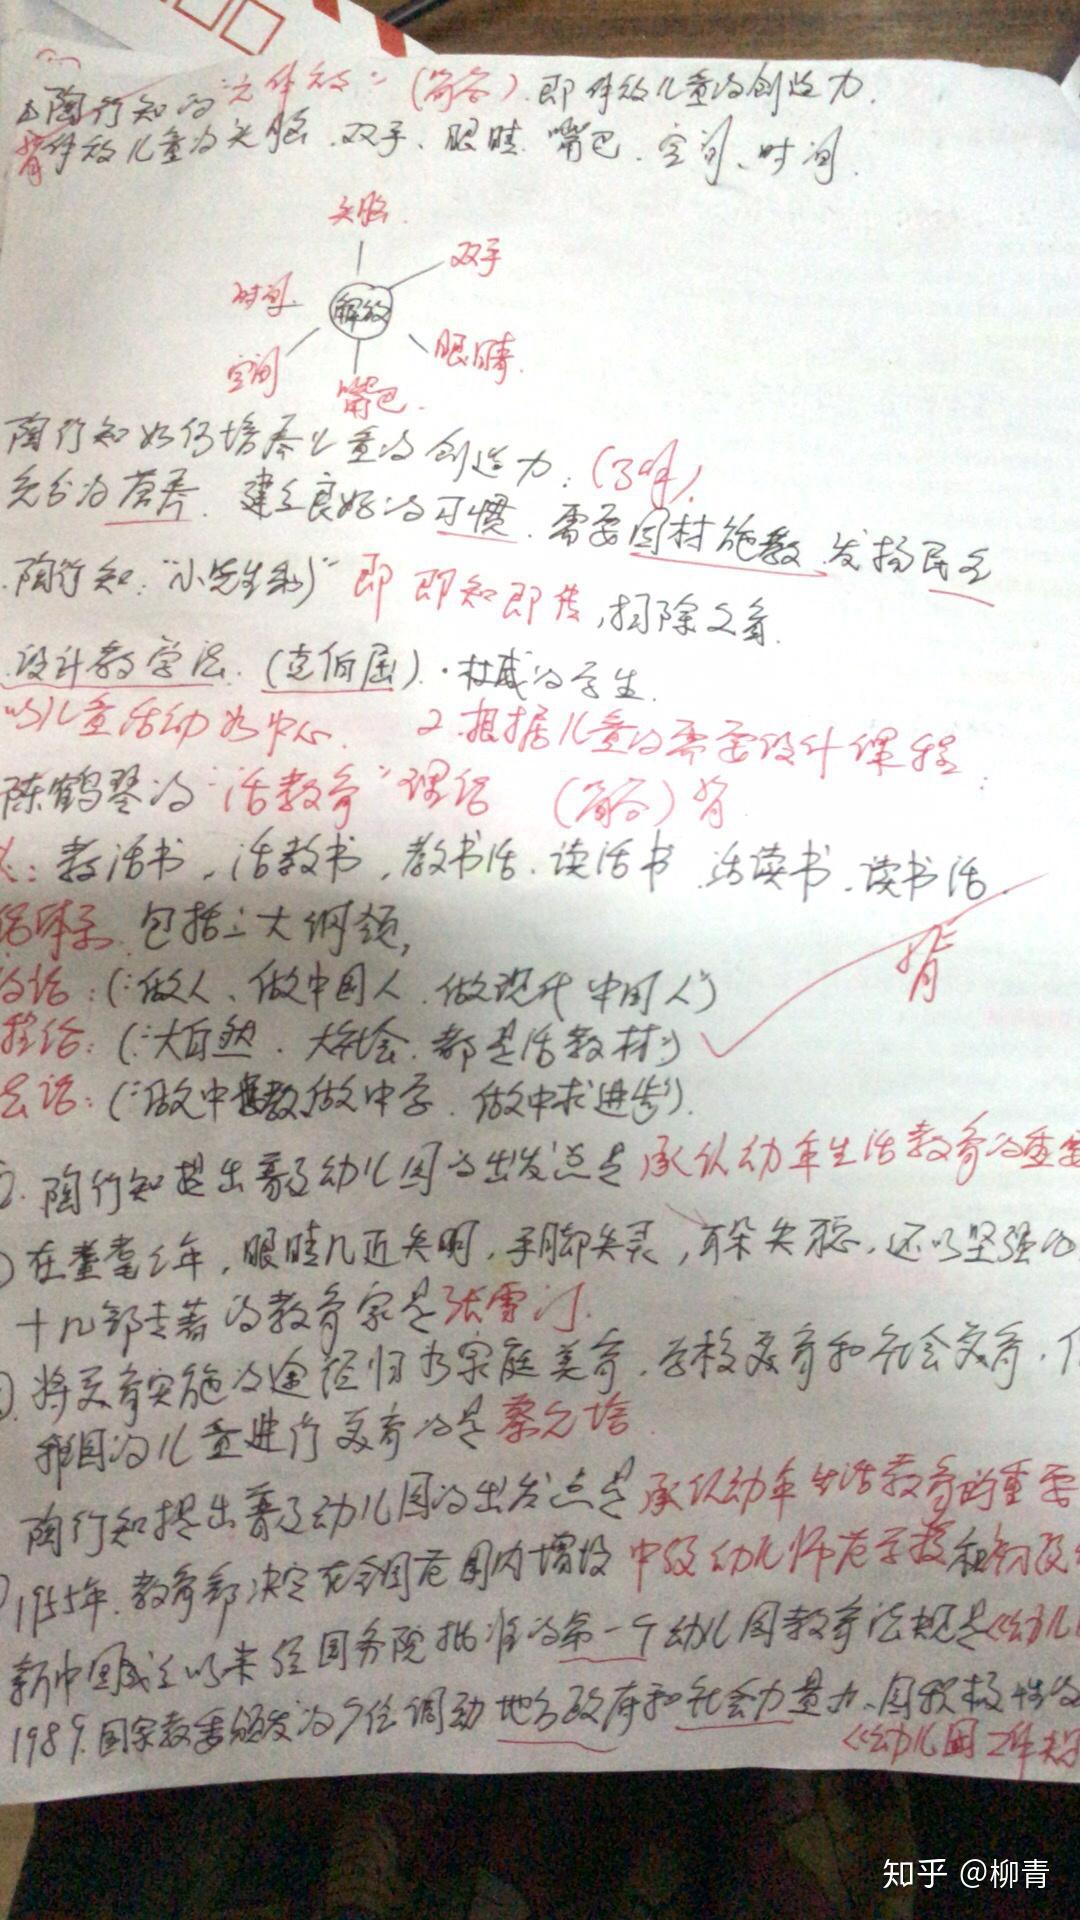 陶行知的"六解放"(简答).即解放儿童的创造力.
背 解放儿童的头脑、双手、眼睛、嘴巴、空间、时间.
头脑.
双手
时间.
解放
眼睛.
空间
嘴巴.
陶行知如何培养儿童的创造力:(了解)
充分的营养.建立良好的习惯.需要因材施教.发扬民主
陶行知:"小先生制"即 即知即传,扫除文盲.
设计教学法.(克伯屈).杜威的学生.
以儿童活动为中心. 2.根据儿童的需要设计课程
陈鹤琴的"活教育"理论 (简答)背
教活书,活教书,教书活.读活书.活读书.读书活.
包括三大纲领,
背
:("做人、做中国人.做现代中国人")
程论:("大自然.大社会.都是活教材")
("做中教,做中学.做中求进步").
2.陶行知提出普及幼儿园的出发点是承认幼年生活教育的重要
在耄耋之年,眼睛几近失明,手脚失灵,耳朵失聪,还以坚强的
十几部专著的教育家是张雪门.
将美育实施的途径归为家庭美育.学校美育和社会美育.
我国的儿童进行美育的是蔡元培.
陶行知提出普及幼儿园的出发点是承认幼年生活教育的重要
1955年.教育部决定在全国范围内增设中级幼儿师范学校和初级
新中国成立以来经国务院批准的第一个幼儿园教育法规是《幼儿
1989.国家教委颁发的 调动地方政府和社会力量办园积极性的
《幼儿园工作规
知乎 @柳青